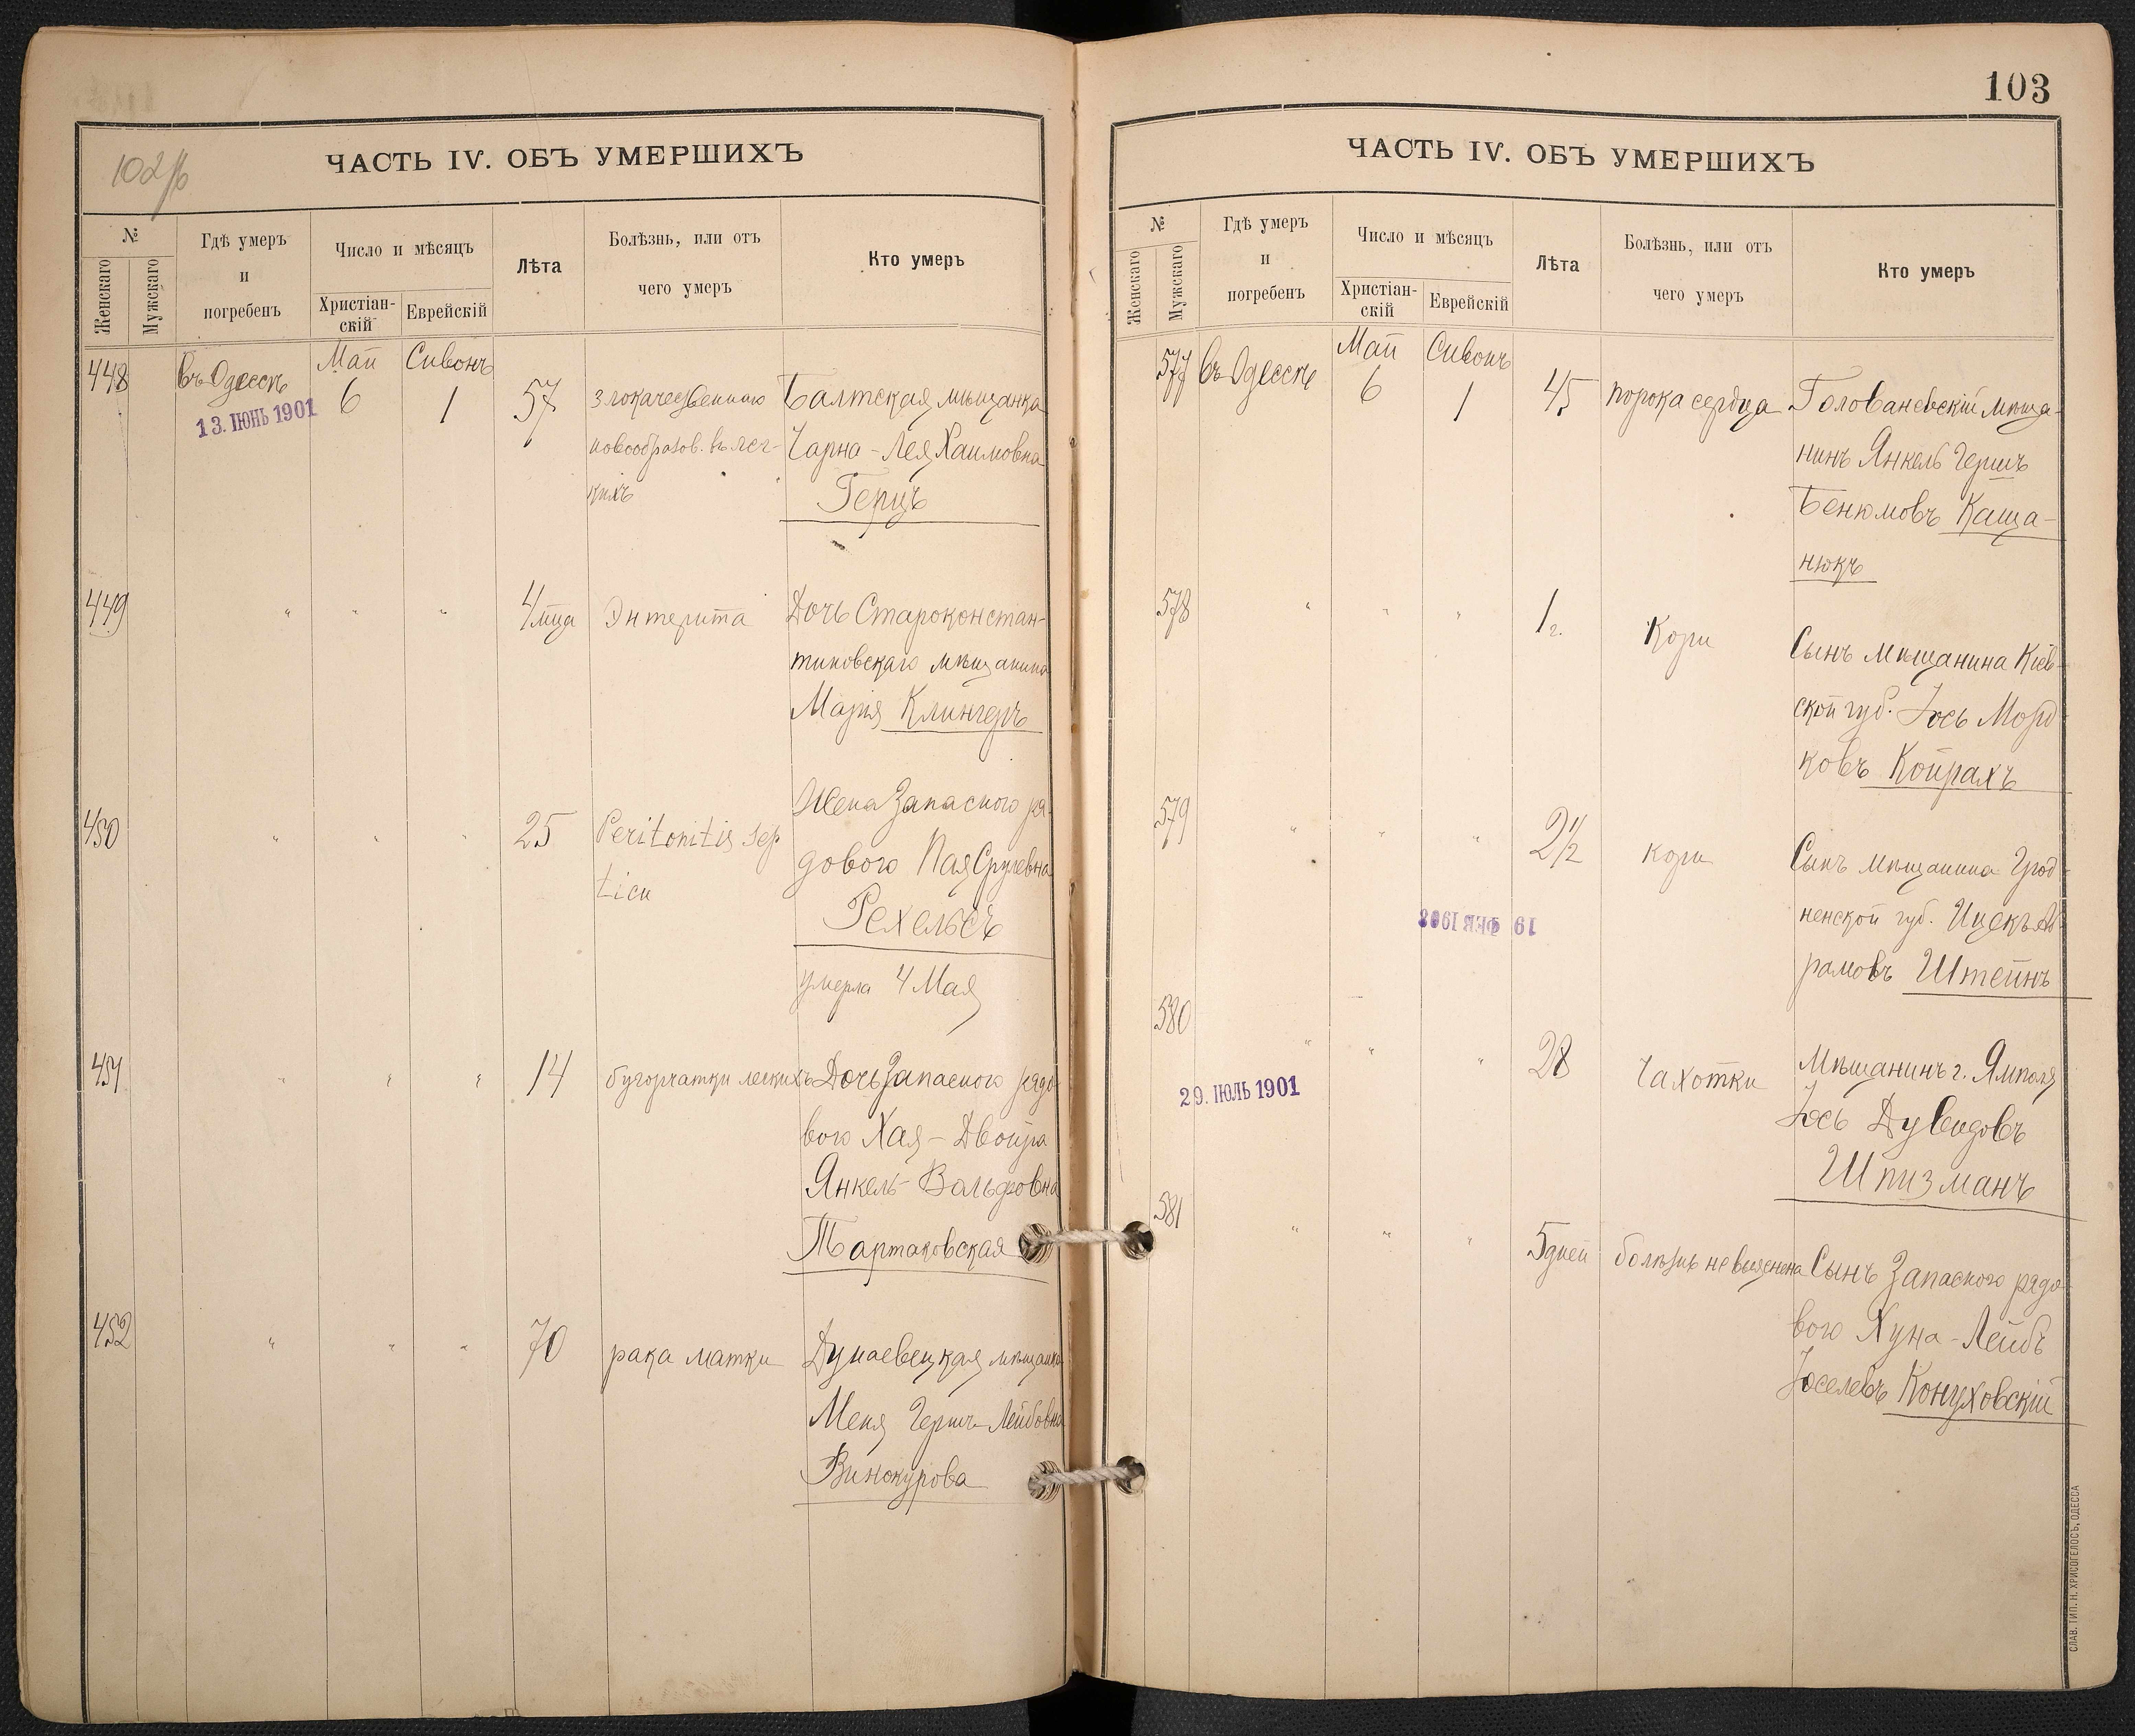 102 об
ЧАСТЬ IV. ОБЪ УМЕРШИХЪ
№
Женскаго
Мужскаго
Гдѣ умеръ
и
погребенъ
Число и мѣсяцъ
Христіан-
скій
Еврейскій
Лѣта
Болѣзнь, или отъ
чего умеръ
Кто умеръ
448
въ Одессѣ
13. ІЮНЬ 1901
Май
6
Сивонъ
1
57
злокачественнаго
новообразов. въ лег-
кихъ
Балтская мѣщанка
Чарна-Лея Хаимовна
Герцъ
449
" " "
4 м͠ца
Энтерита
Дочь Староконстан-
тиновскаго мѣщанина
Марія Клингеръ
450
" " "
25
Peritonitis sep
tica
Жена Запасного ря-
дового Пая Срулевна
Рехельсъ
умерла 4 Мая
451
" " "
14
бугорчатки легкихъ
Дочь Запасного рядо-
вого Хая-Двойра
Янкель-Вольфовна
Тартаковская
452
" " "
70
рака матки
Дунаевецкая мѣщанка
Меня Гершъ-Лейбовна
Винокурова
103
ЧАСТЬ IV. ОБЪ УМЕРШИХЪ
№
Женскаго
Мужскаго
Гдѣ умеръ
и
погребенъ
Число и мѣсяцъ
Христіан-
скій
Еврейскій
Лѣта
Болѣзнь, или отъ
чего умеръ
Кто умеръ
577
въ Одессѣ
Май
6
Сивонъ
1
45
порока сердца
Голованевскій мѣща-
нинъ Янкель Гершъ
Бенюмовъ Каща-
нюкъ
578
" " "
1 г.
Кори
Сынъ мѣщанина Кіев-
ской губ. Іось Морд-
ковъ Койрахъ
579
" " "
2 1/2
кори
Сынъ мѣщанина Грод-
ненской губ. Ицекъ Аб-
рамовъ Штейнъ
19 ФЕВ 1903
580
" " "
29. ІЮЛЬ 1901
28
Чахотки
Мѣщанинъ г. Ямполя
Іось Дувидовъ
Шпизманъ
581
" " "
5 дней
болѣзнь не выяснена
Сынъ Запасного рядо-
вого Хуна-Лейбъ
Іоселевъ Конуховскій
СЛАВ. ТИП. Н. ХРИСОГЕЛОСЪ, ОДЕССА